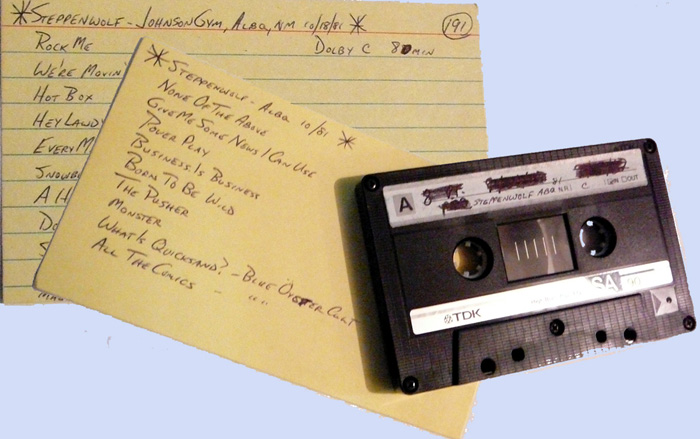 *STEPPENWOLF - JOHNSON GYM, ALBQ, NM 10/18/81 * 191
ROCK ME DOLBY C 80 MIN
WE'RE MOVIN'
HOT BOX
HEY LAWDY
EVERY M
SNOWB
A H
DO
S
MA
* STEPPENWOLF - ALBQ 10/81 *
NONE OF THE ABOVE
GIVE ME SOME NEWS I CAN USE
POWER PLAY
BUSINESS IS BUSINESS
BORN TO BE WILD
THE PUSHER
MONSTER
WHAT IS QUICKSAND? - BLUE ÖYSTER CULT
ALL THE COMICS - " "
A
81
STEPPENWOLF ABQ NM C
SA 90
TDK